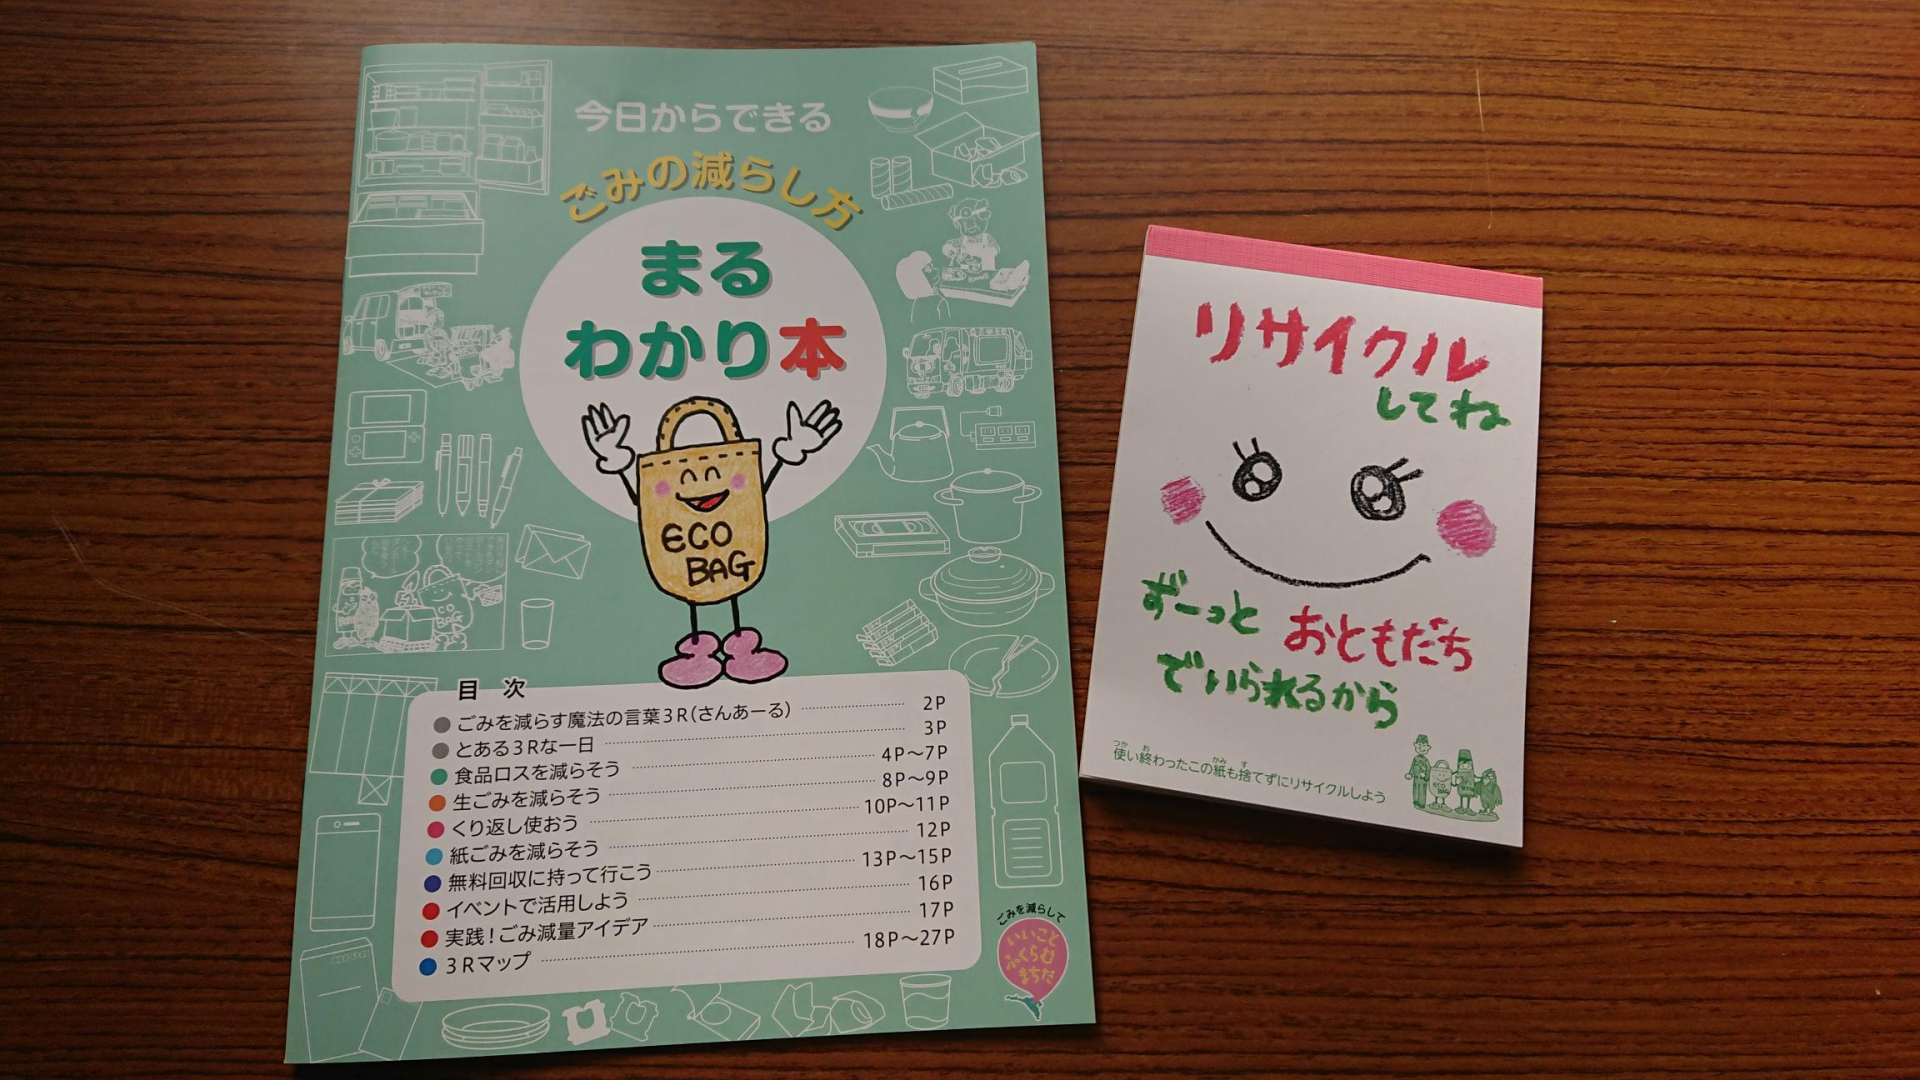 今日からできる
ごみの減らし方
まる
わかり本
ECO
BAG
目 次
ごみを減らす魔法の言葉3R(さんあーる) 2P
とある3Rな一日 3P
食品ロスを減らそう 4P〜7P
生ごみを減らそう 8P〜9P
くり返し使おう 10P〜11P
紙ごみを減らそう 12P
無料回収に持って行こう 13P〜15P
イベントで活用しよう 16P
実践!ごみ減量アイデア 17P
3Rマップ 18P〜27P
ごみを減らして
いいこと
ふくらむ
まちだ
リサイクル
してね
ずーっと おともだち
でいられるから
使い終わったこの紙も捨てずにリサイクルしよう
つか お かみ す
ECO
BAG